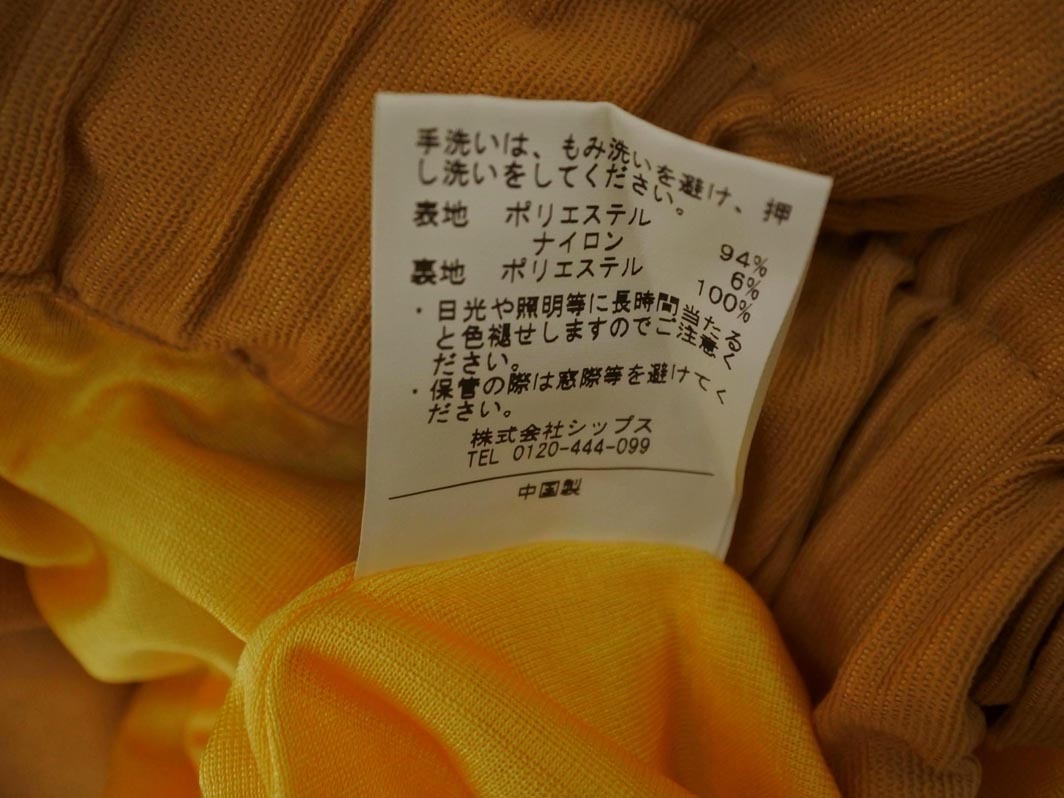 手洗いは、もみ洗いを避け、押
し洗いをしてください。
表地 ポリエステル 94%
ナイロン 6%
裏地 ポリエステル 100%
・日光や照明等に長時間当たる
と色褪せしますのでご注意く
ださい。
・保管の際は窓際等を避けてく
ださい。
株式会社シップス
TEL 0120-444-099
中国製